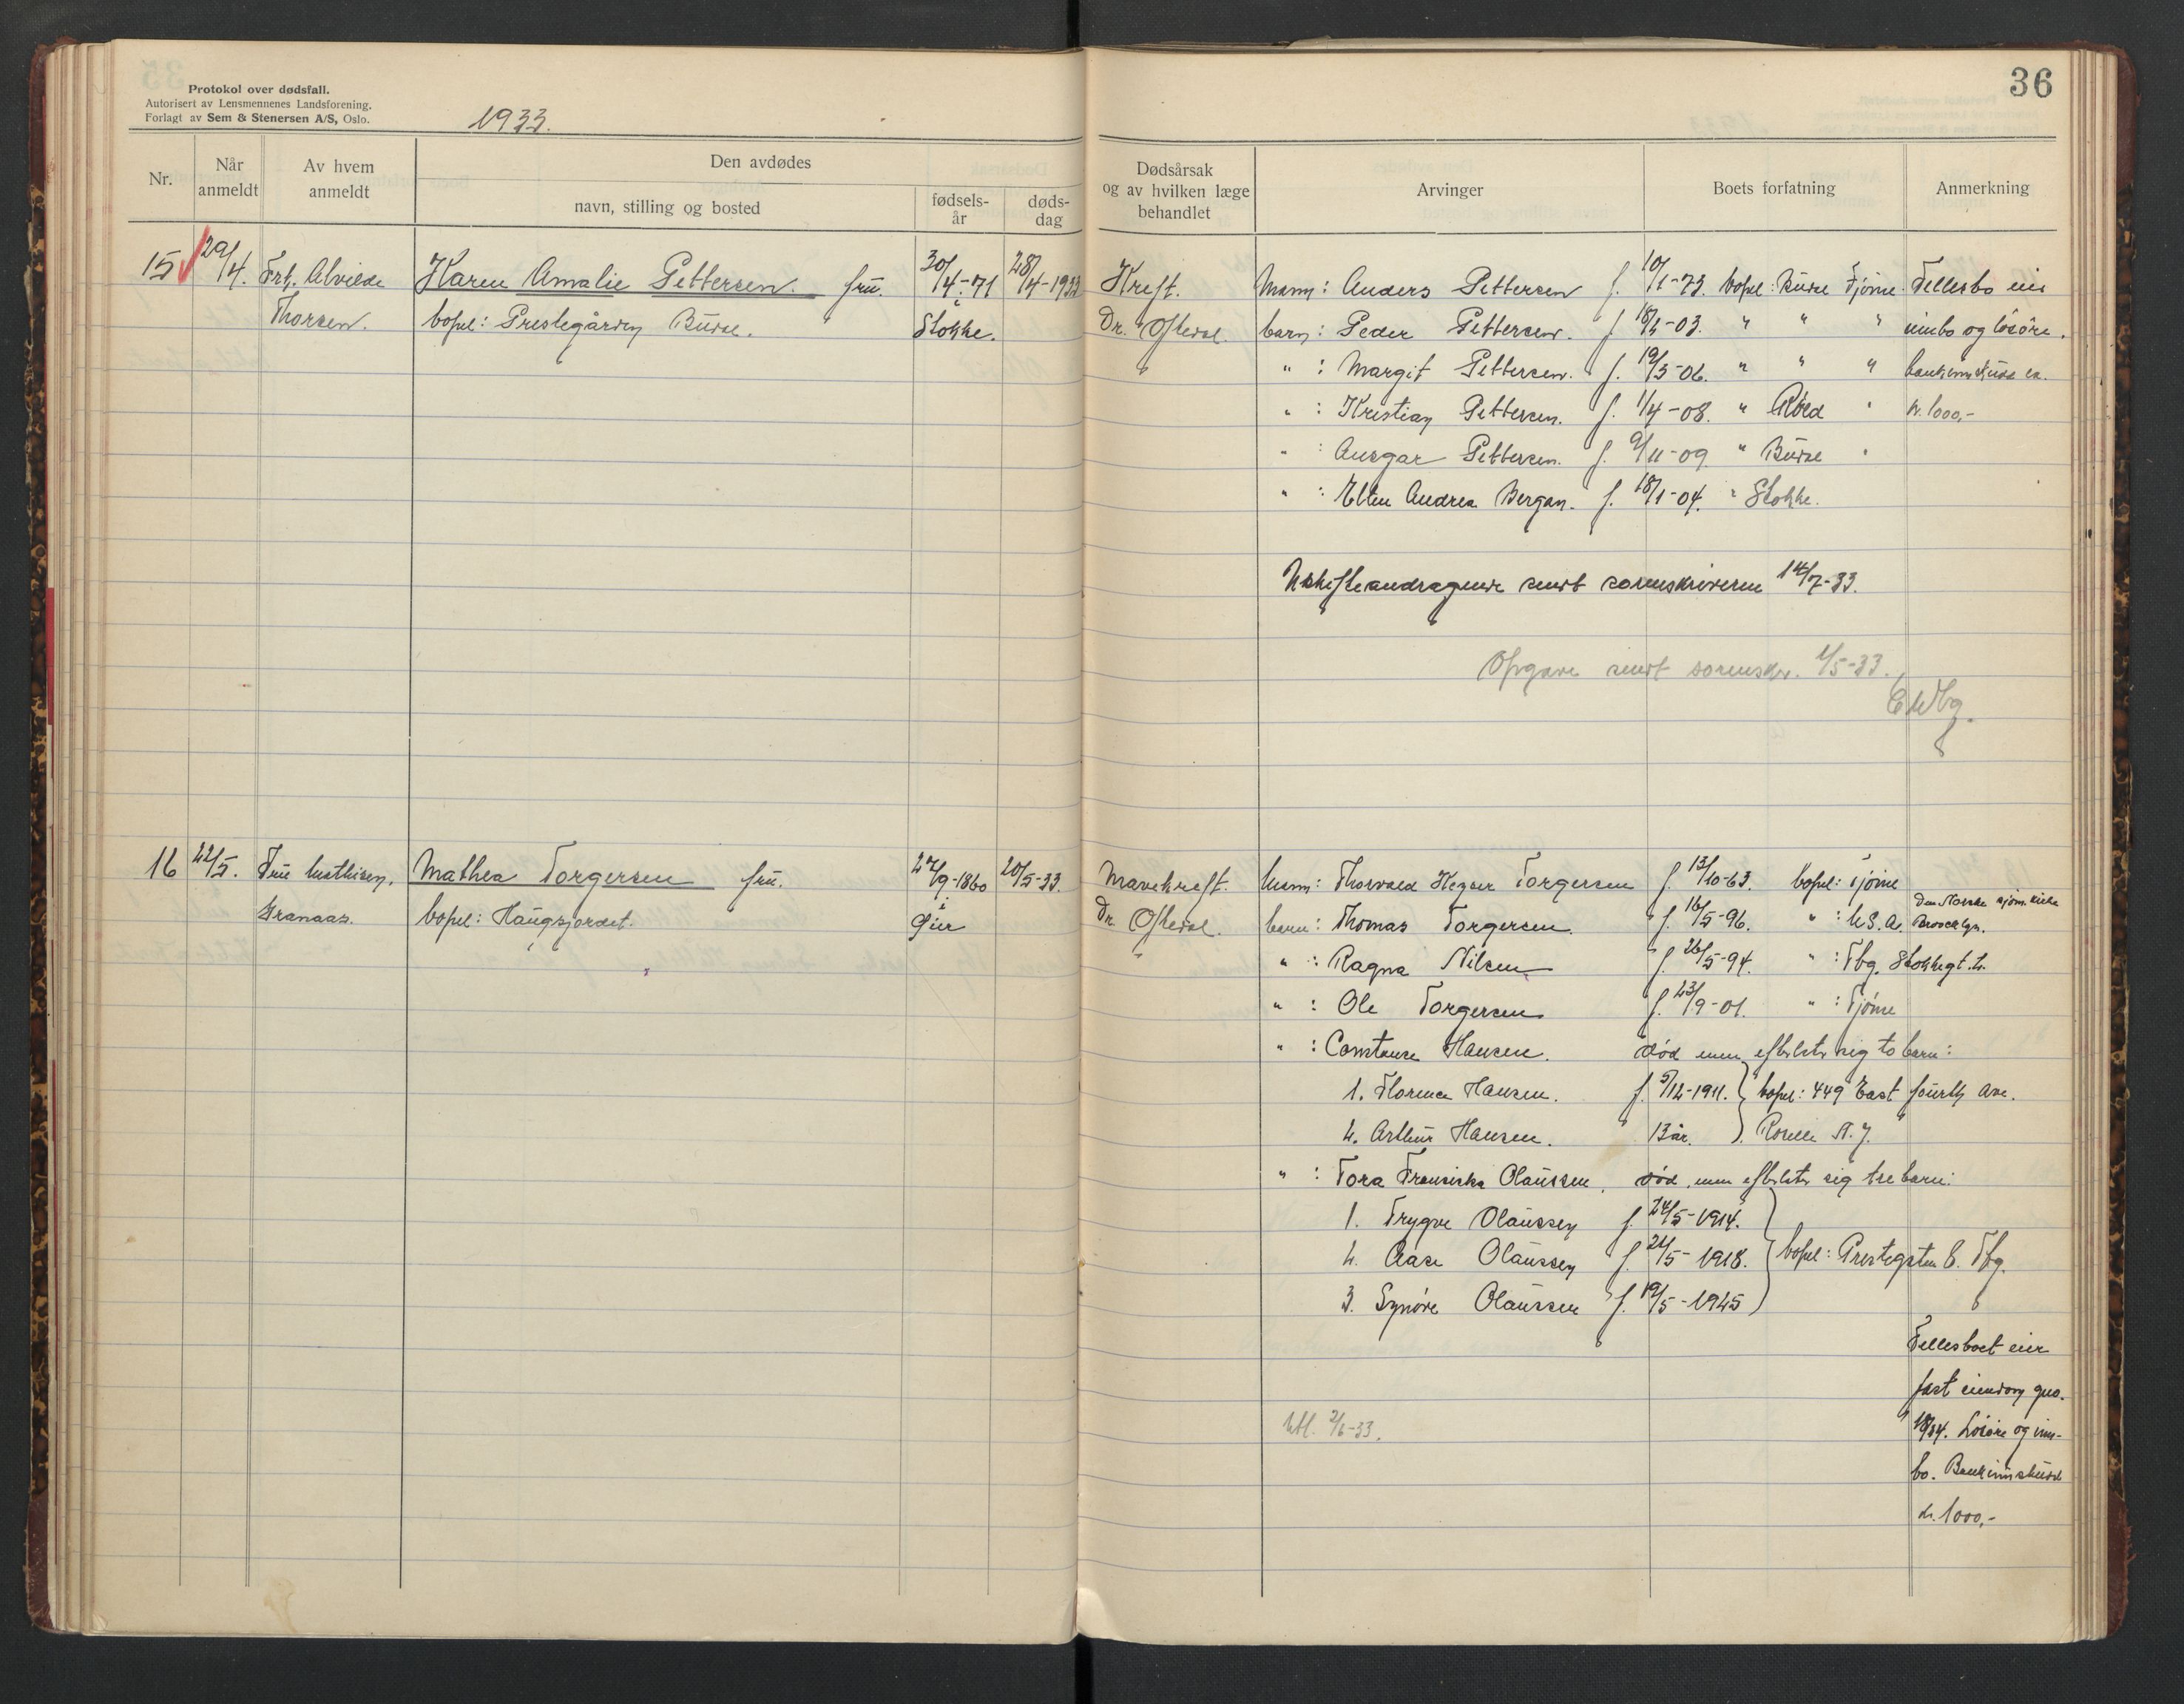 Protokol over dødsfall.
Autorisert av Lensmennenes Landsforening.
Forlagt av Sem & Stenersen A/S, Oslo.
1933.
36
Nr.
Når anmeldt
Av hvem anmeldt
Den avdødes
navn, stilling og bosted
fødsels-år
døds-dag
Dødsårsak og av hvilken læge behandlet
Arvinger
Boets forfatning
Anmerkning
15 29/4. Frk. Alvilde Karen Amalie Pettersen. fru. 30/4-71 28/4-1933 Kreft. Mann: Anders Pettersen f. 10/1-73. bopel: Burse Tjøme. Fellesbo eier
Thorsen. bopel: Prestegården i Stokke. Dr. Oftedal. barn: Peder Pettersen. f. 18/1-03. " " " innbo og løsøre.
" : Margit Pettersen. f. 19/3-06. " " " bankinnskudd ca.
" : Kristian Pettersen. f. 1/4-08. " Röed " kr. 1000,-
" : Ansgar Pettersen. f. 9/11-09. " "
" : Ellen Andrea Bergan. f. 18/1-04. " Stokke.
sendt sorenskriveren 14/7-33.
Opgave sendt sorenskr. 1/5-33.
16 22/5. Fru Mathisen, Mathea Torgersen fru. 27/9-1860 20/5-33. Mavekreft. Mann: Thorvald Torgersen f. 13/10-63. bopel: Tjøme
Granaas. bopel: Haugsjordet. i Dr. Oftedal. barn: Thomas Torgersen. f. 16/5-96. " : U.S.A. Den Norske sjøm. kirke
Broocklyn.
" : Ragna Nilsen f. 26/5-94. " : Tbg. Stokkegt. 2.
" : Ole Torgersen f. 23/9-01. " : Tjöme
" : Constanse Hansen. död men efterlater sig to barn:
1. Florence Hansen. f. 5/12-1911. bopel: 449 East fourth Ave.
2. Arthur Hansen. 13 år. Roselle N. J.
" : Tora Fransiska Olaussen, död, men efterlater sig tre barn:
1. Trygve Olaussen f. 24/5-1914.
2. Aase Olaussen f. 21/5-1918. bopel: Prestegaten 8. Tbg.
3. Synöve Olaussen f. 19/5-1925
Fellesboet eier
fast eiendom gno.
18/34. Lösöre og inn-
bo. Bankinnskudd
kr. 1000,-
Utl. 2/6-33.